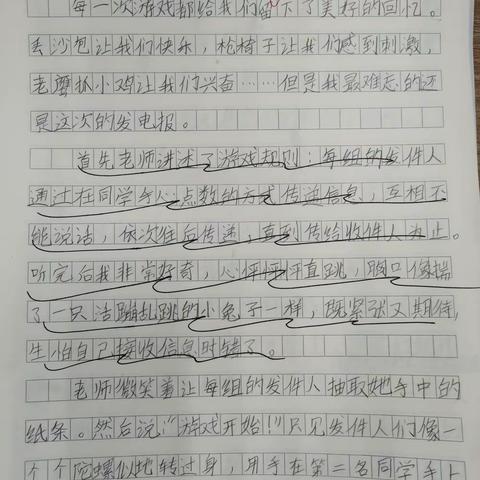 每一次游戏都给我们留下了美好的回忆。
丢沙包让我们快乐，抢椅子让我们感到刺激，
老鹰抓小鸡让我们兴奋……但是我最难忘的还
是这次的发电报。
首先老师讲述了游戏规则：每组的发件人
通过在同学手心点数的方式传递信息，互相不
能说话，依次往后传递，直到传给收件人为止。
听完后我非常好奇，心怦怦怦直跳，胸口像揣
了一只活蹦乱跳的小兔子一样，既紧张又期待，
生怕自己接收信息时错了。
老师微笑着让每组的发件人抽取她手中的
纸条。然后说：“游戏开始！”只见发件人们像一
个个陀螺似地转过身，用手在第二名同学手上